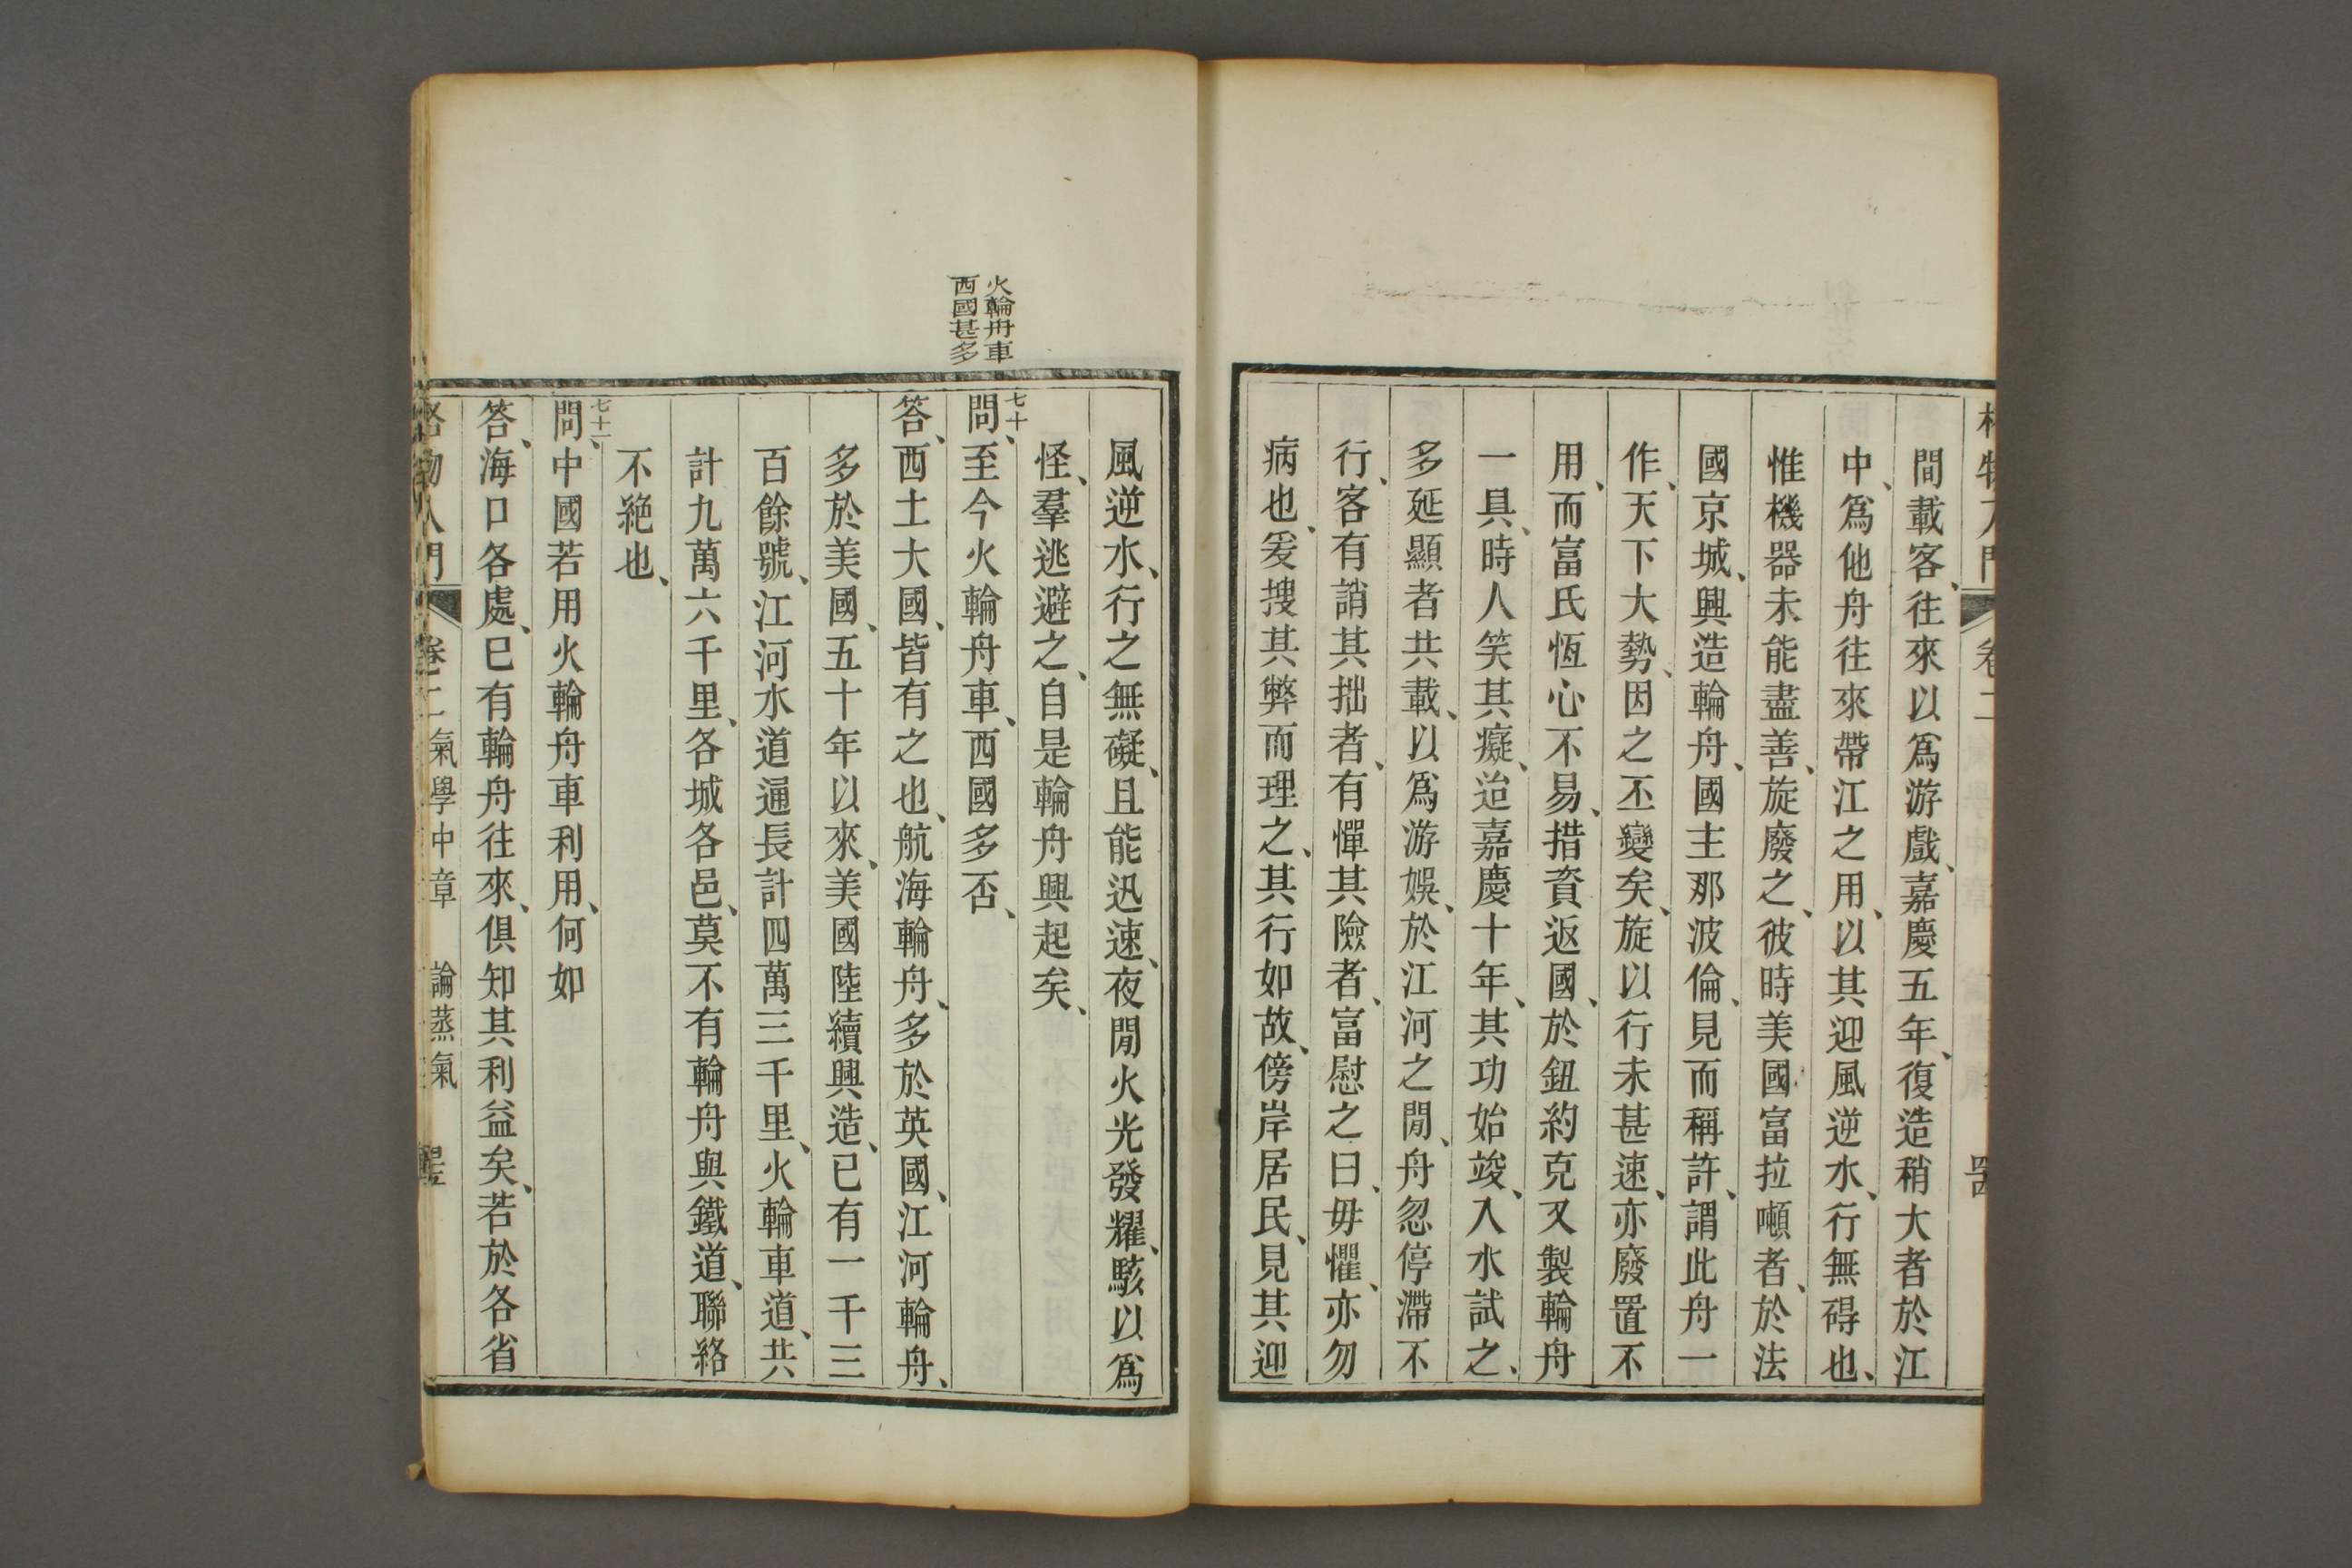 格物入門 卷二
間載客、往來以爲游戲、嘉慶五年、復造稍大者於江
中、爲他舟往來帶江之用、以其迎風逆水、行無碍也、
惟機器未能盡善、旋廢之、彼時美國富拉噸者、於法
國京城、興造輪舟、國主那波倫、見而稱許、謂此舟一
作、天下大勢、因之丕變矣、旋以行未甚速、亦廢置不
用、而富氏恆心不易、措資返國、於鈕約克又製輪舟
一具、時人笑其癡、迨嘉慶十年、其功始竣、入水試之、
多延顯者共載、以爲游娛、於江河之閒、舟忽停滯不
行、客有誚其拙者、有憚其險者、富慰之曰、毋懼、亦勿
病也、爰搜其弊而理之、其行如故、傍岸居民、見其迎
風逆水、行之無礙、且能迅速、夜閒火光發耀、駭以爲
怪、羣逃避之、自是輪舟興起矣、
火輪舟車
西國甚多
七十
問、至今火輪舟車、西國多否、
答、西土大國、皆有之也、航海輪舟、多於英國、江河輪舟、
多於美國、五十年以來、美國陸續興造、已有一千三
百餘號、江河水道通長計四萬三千里、火輪車道、共
計九萬六千里、各城各邑、莫不有輪舟與鐵道、聯絡
不絕也、
七十一
問、中國若用火輪舟車利用、何如
答、海口各處、已有輪舟往來、俱知其利益矣、若於各省
格物入門 卷二 氣學中章 論蒸氣